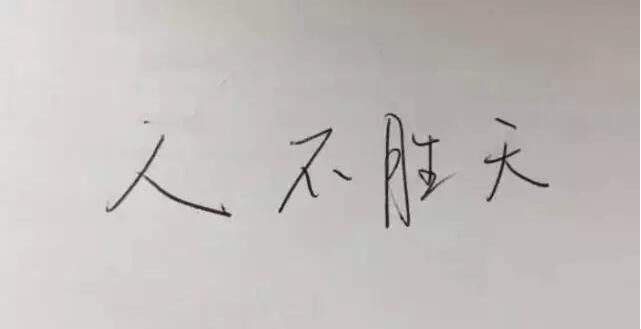 人不胜天